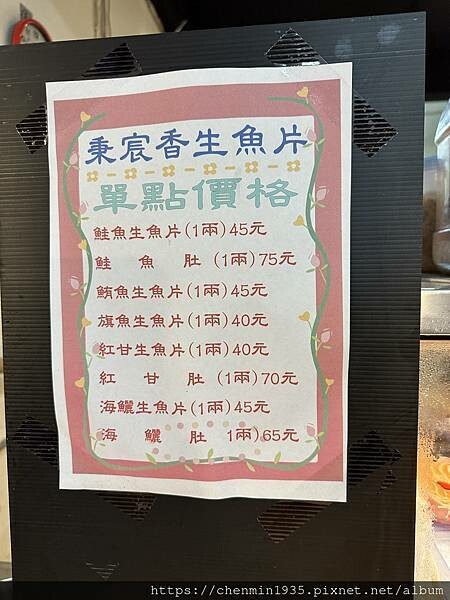 秉宸香生魚片
單點價格
鮭魚生魚片(1兩)45元
鮭魚肚(1兩)75元
鮪魚生魚片(1兩)45元
旗魚生魚片(1兩)40元
紅甘生魚片(1兩)40元
紅甘肚(1兩)70元
海鱺生魚片(1兩)45元
海鱺肚 1兩)65元
https://chenmin1935.pixnet.net/album